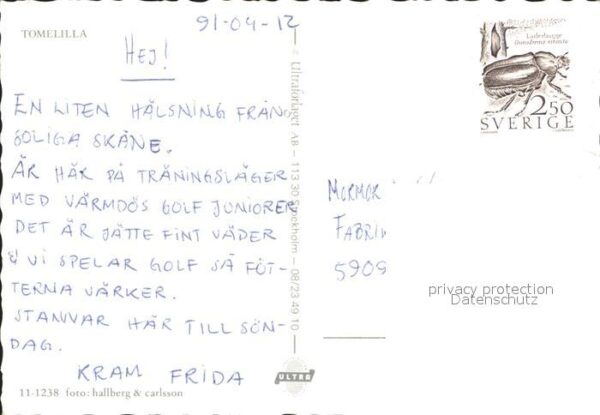 TOMELILLA
91-04-12
HEJ!
EN LITEN HÄLSNING FRÅN
SOLIGA SKÅNE.
ÄR HÄR PÅ TRÄNINGSLÄGER
MED VÄRMDÖS GOLF JUNIORER
DET ÄR JÄTTE FINT VÄDER
& VI SPELAR GOLF SÅ FÖT-
TERNA VÄRKER.
STANNAR HÄR TILL SÖN-
DAG.
KRAM FRIDA
11-1238 foto: hallberg & carlsson
Ultraförlaget AB – 113 30 Stockholm – 08/23 49 10
ULTRA
Läderbagge
Osmoderma eremita
2.50
SVERIGE
MORMOR
FABRI
5909
privacy protection
Datenschutz